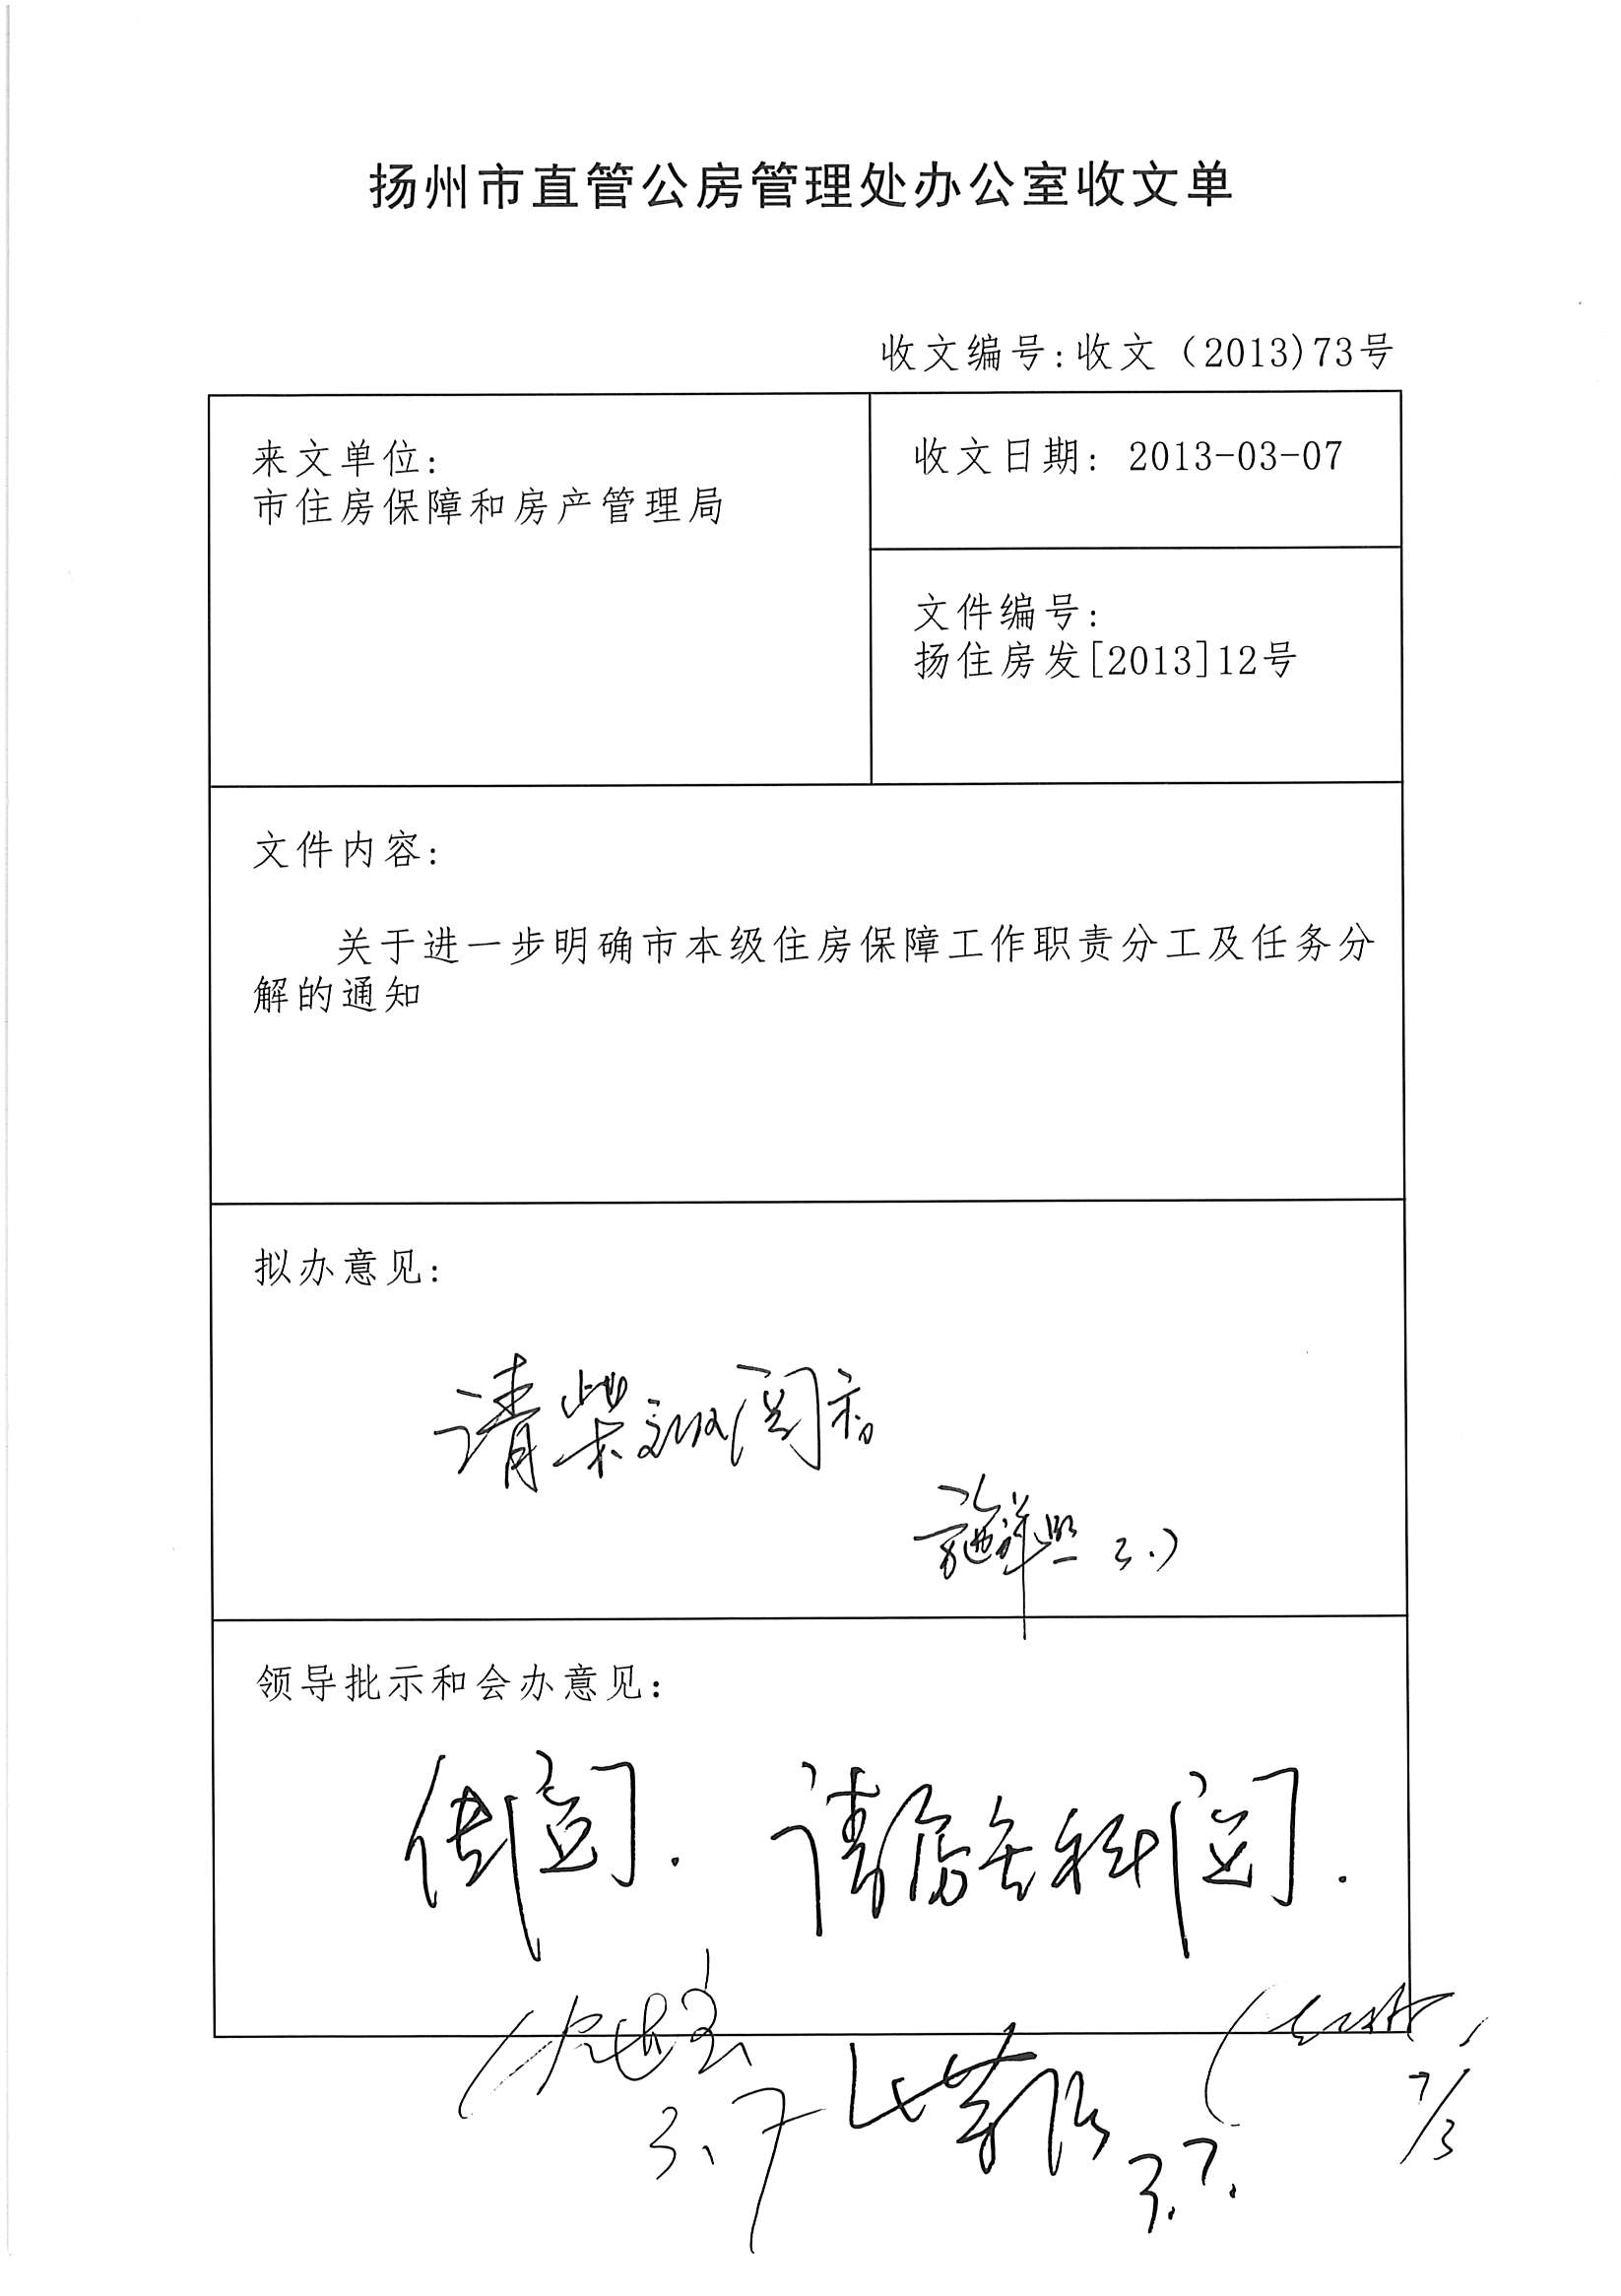 扬州市直管公房管理处办公室收文单
收文编号:收文（2013)73号
来文单位:
市住房保障和房产管理局
收文日期: 2013-03-07
文件编号:
扬住房发[2013]12号
文件内容:
关于进一步明确市本级住房保障工作职责分工及任务分
解的通知
拟办意见:
请柴 阅示
施 3.7
领导批示和会办意见:
传阅. 请房 科阅.
3.7
3.7.
7/3